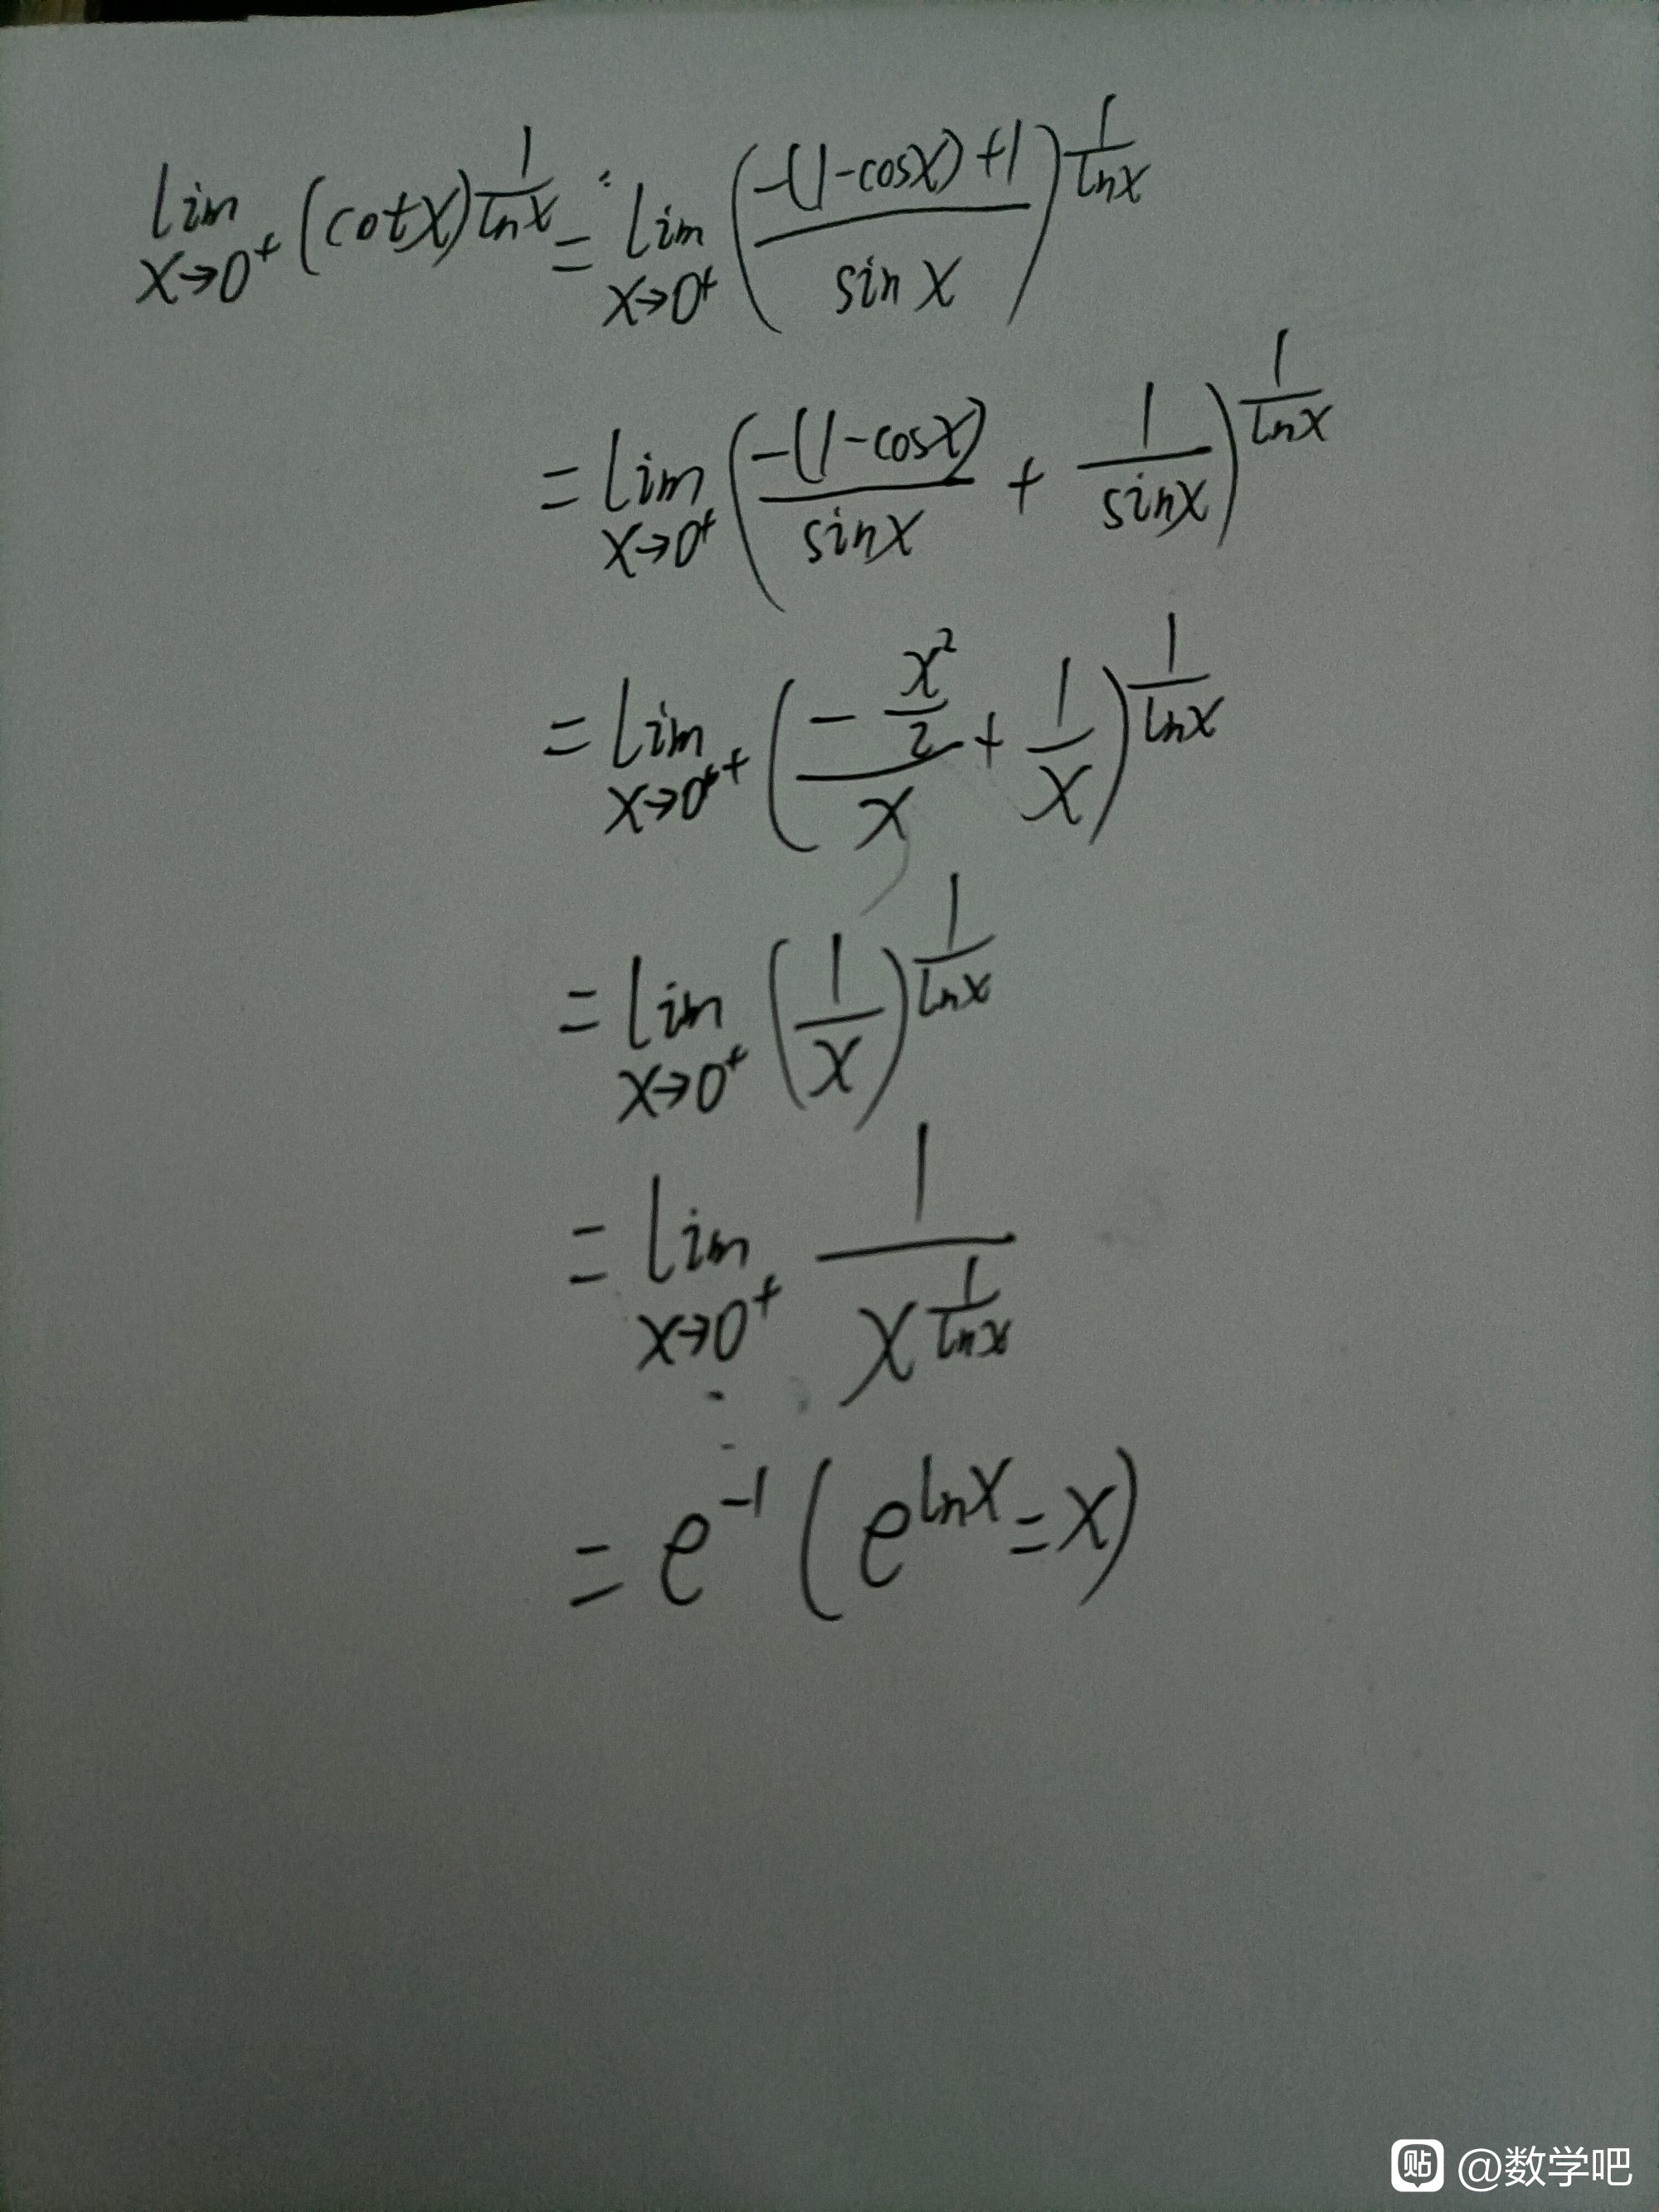 lim x→0⁺ (cotx)^(1/lnx) = lim x→0⁺ (-(1-cosx)+1 / sinx)^(1/lnx)
= lim x→0⁺ (-(1-cosx)/sinx + 1/sinx)^(1/lnx)
= lim x→0⁺⁺ (-x²/2 / x + 1/x)^(1/lnx)
= lim x→0⁺ (1/x)^(1/lnx)
= lim x→0⁺ 1/x^(1/lnx)
= e⁻¹ (e^(lnx) = x)
贴 @数学吧